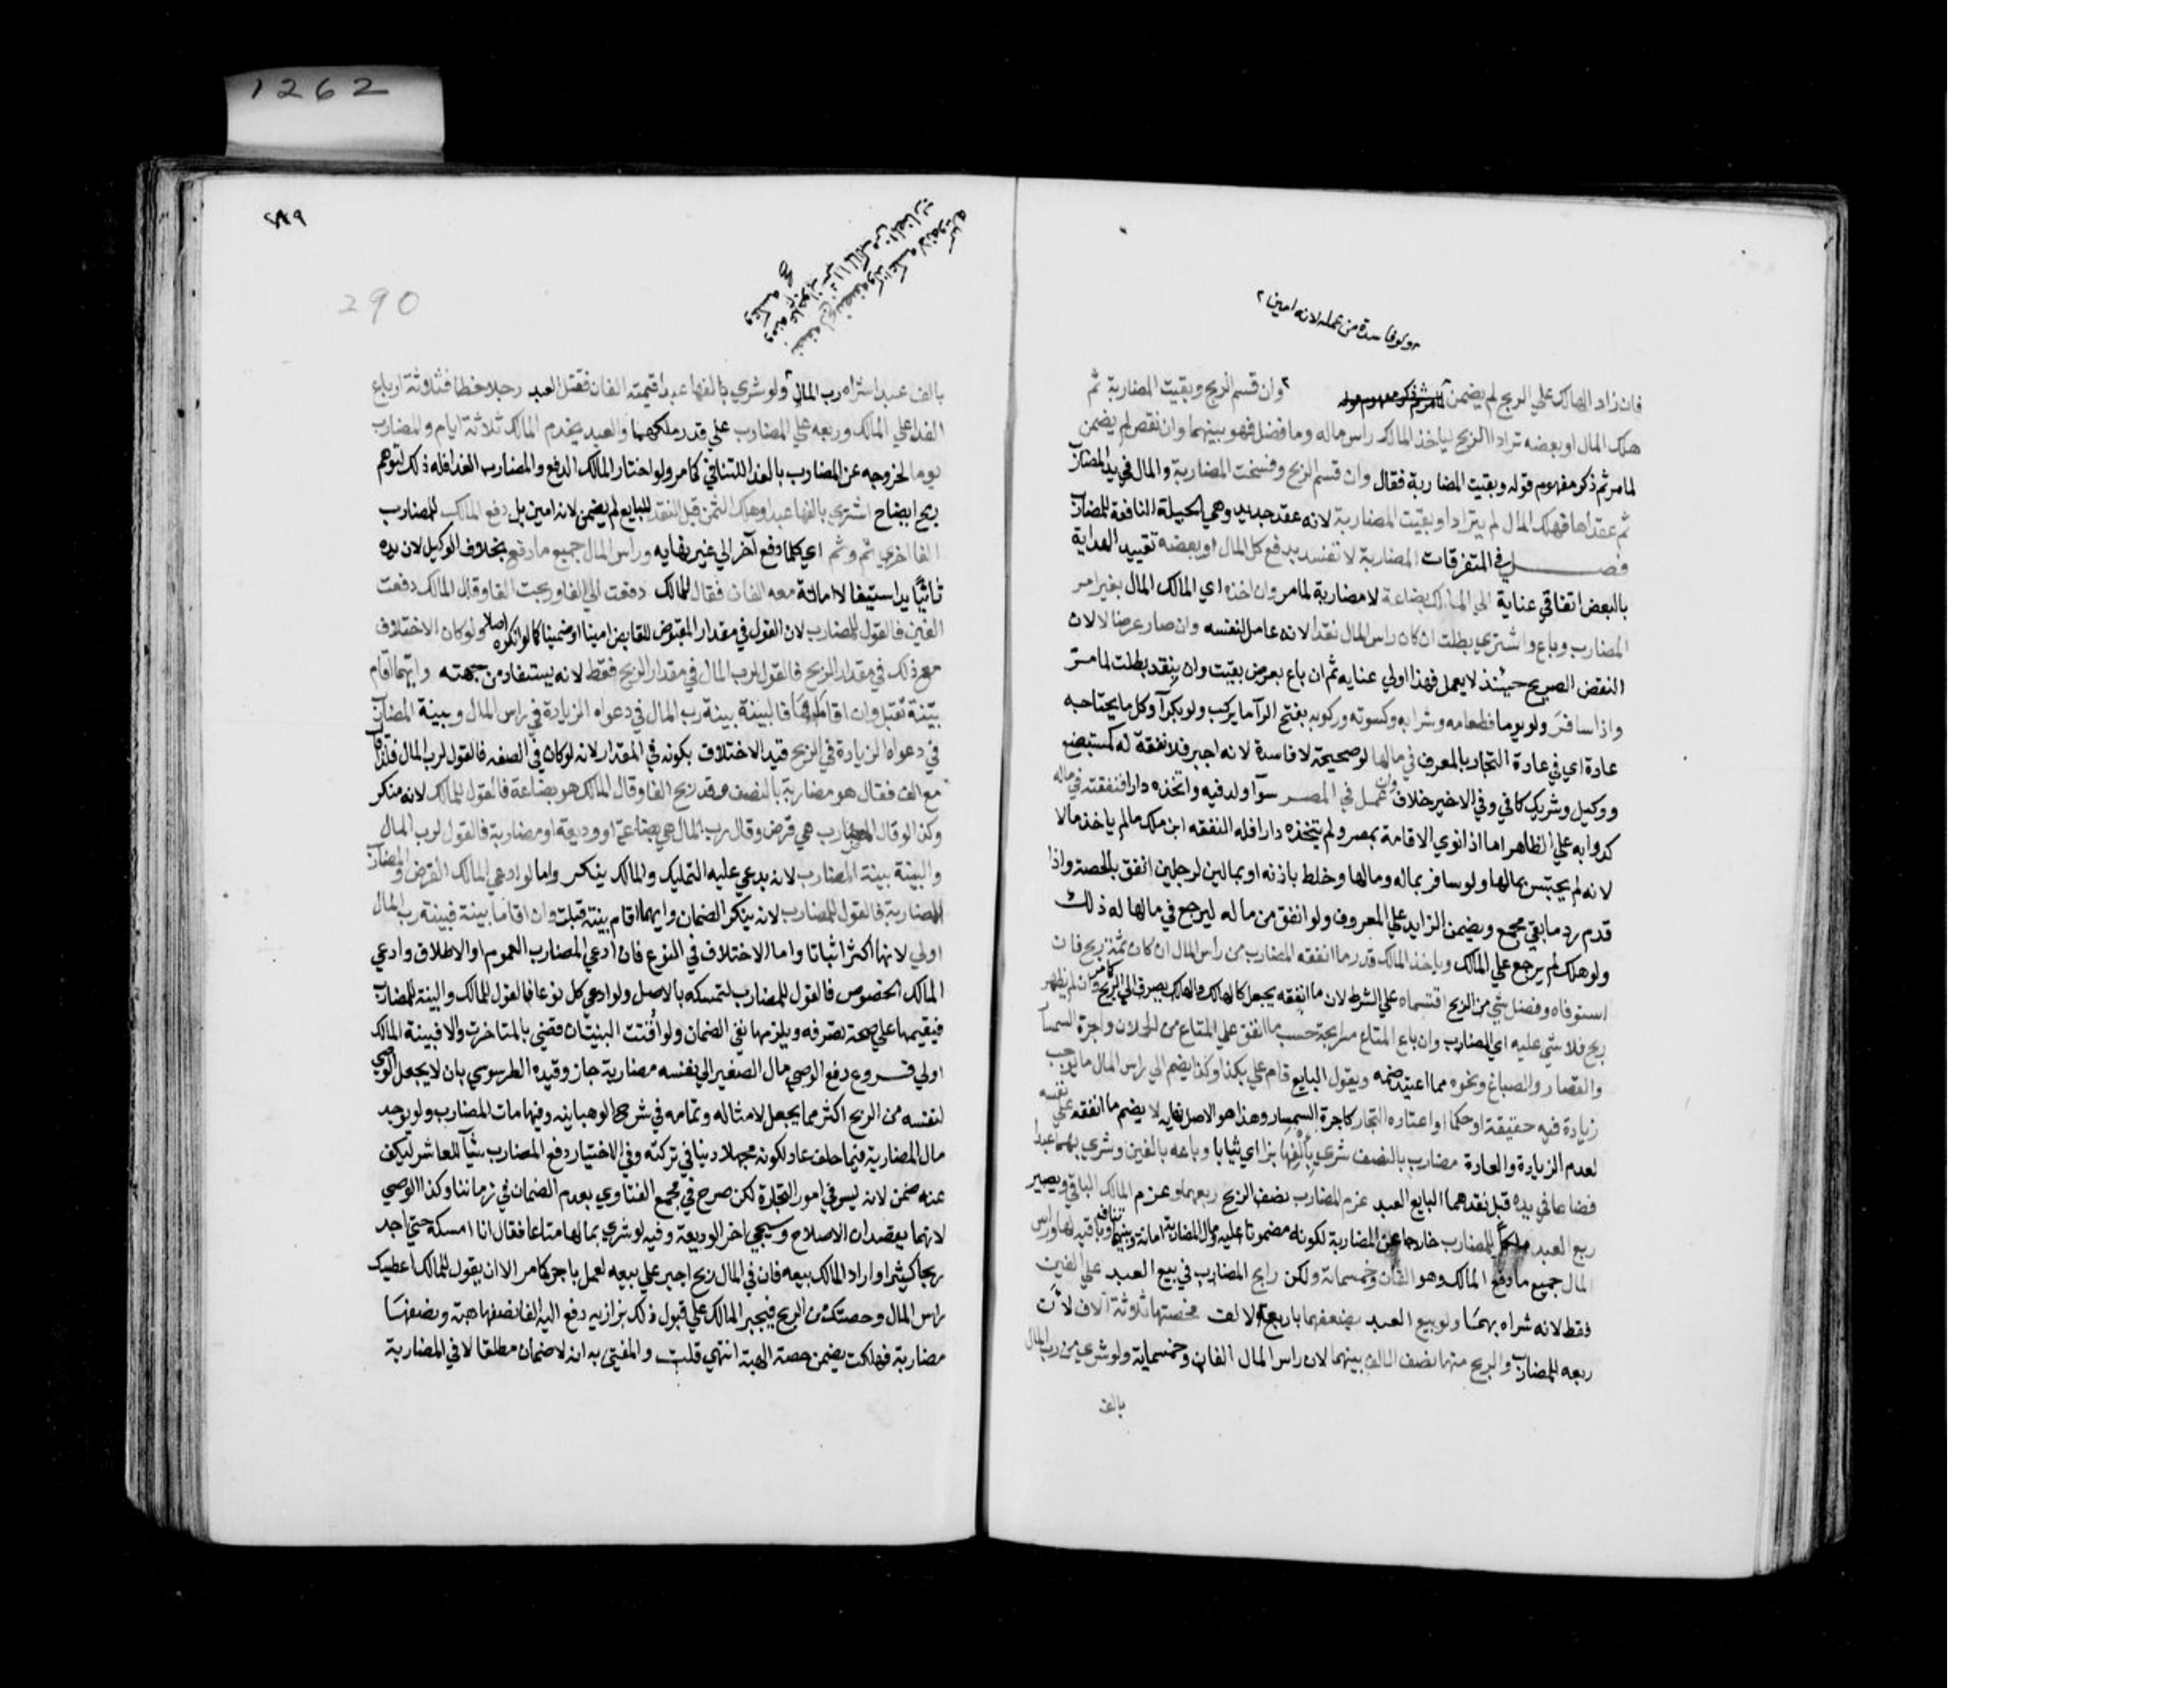 1262
ولو فاسدة من عمله لانه امين ٢
فان زاد الهالك علي الربح لم يضمن ٢ وان قسم الربح وبقيت المضاربة ثم
هلك المال او بعضه ترادا الربح لياخذ المالك راس ماله وما فضل فهو بينهما وان نقص لم يضمن
لما مر ثم ذكر مفهوم قوله وبقيت المضاربة فقال وان قسم الربح وفسخت المضاربة والمال في يد المضارب
ثم عقداها فهلك المال لم يترادا وبقيت المضاربة لانه عقد جديد وهي الحيلة النافعة للمضارب
فصل في المتفرقات المضاربة لا تفسد بدفع كل المال او بعضه تقييد الهداية
بالبعض اتفاقي عناية الي المالك بضاعة لا مضاربة لما مر وان اخذه اي المالك المال بغير امر
المضارب وباع واشتري بطلت ان كان راس المال نقدا لانه عامل لنفسه وان صار عرضا لا لان
النقض الصريح حينئذ لا يعمل فهذا اولي عنايه ثم ان باع بعرض بقيت وان بنقد بطلت لما مر
واذا سافر ولو يوما فطعامه وشرابه وكسوته وركوبه بفتح الرآ ما يركب ولو بكرآ وكل ما يحتاجه
عادة اي في عادة التجار بالمعروف في مالها لو صحيحة لا فاسدة لانه اجير فلا نفقة له كمستبضع
ووكيل وشريك كافي وفي الاخير خلاف وان عمل في المصر سوآ ولد فيه واتخذه دارا فنفقته في ماله
كدوايه علي الظاهر اما اذا نوي الاقامة بمصر ولم يتخذه دارا فله النفقه ابن ملك ما لم ياخذ مالا
لانه لم يحتبس بمالها ولو سافر بماله ومالها وخلط باذنه او بمالين لرجلين انفق بالحصة واذا
قدم رد ما بقي مجمع ويضمن الزايد علي المعروف ولو انفق من ماله ليرجع في مالها له ذلك
ولو هلك لم يرجع علي المالك وياخذ المالك قدر ما انفقه المضارب من راس المال ان كان ثمة ربح فان
استوفاه وفضل شي من الربح اقتسماه علي الشرط لان ما انفقه يجعل كالهالك والهالك يصرف الي الربح كما مر وان لم يظهر
ربح فلا شي عليه اي المضارب وان باع المتاع مرابحة حسب ما انفق علي المتاع من الحملان واجرة السمسار
والقصار والصباغ ونحوه مما اعتيد ضمه ويقول البايع قام علي بكذا وكذا يضم الي راس المال ما يوجب
زيادة فيه حقيقة او حكما او اعتاره التجار كاجرة السمسار وهذا هو الاصل نهايه لا يضم ما انفقه علي نفسه
لعدم الزيادة والعادة مضارب بالنصف شري بالفها بزا اي ثيابا وباعه بالفين وشري بهما عبدا
فضاعا في يده قبل نقدهما البايع العبد غرم المضارب نصف الربح ربعهما وغرم المالك الباقي ويصير
ربع العبد ملكا للمضارب خارجا عن المضاربة لكونه مضمونا عليه ومال المضاربة امانة وبينهما تناف وباقيه لها وراس
المال جميع ما دفع المالك وهو الفان وخمسماية ولكن رابح المضارب في بيع العبد علي الفين
فقط لانه شراه بهما ولو بيع العبد بضعفهما باربعة الاف فحصتها ثلاثة آلاف لان
ربعه للمضارب والربح منها نصف الالف بينهما لان راس المال الفان وخمسماية ولو شري من رب المال
بالف
٢٨٩
290
بالف عبدا شراه رب المال ولو شري بالفها عبدا قيمته الفان فقتل العبد رجلا خطا فثلاثة ارباع
الفدا علي المالك وربعه علي المضارب علي قدر ملكهما والعبد يخدم المالك ثلاثة ايام والمضارب
يوما لخروجه عن المضارب بالفدا للتنافي كما مر ولو اختار المالك الدفع والمضارب الفدا فله ذلك لتوهم
ربح ايضاح اشتري بالفها عبدا وهلك الثمن قبل النقد للبايع لم يضمن لانه امين بل دفع المالك للمضارب
الفا اخري ثم وثم اي كلما دفع آخر الي غير نهايه وراس المال جميع ما دفع بخلاف الوكيل لان يده
ثانيا يد استيفا لا امانة معه الفان فقال للمالك دفعت الي الفا وربحت الفا وقال المالك دفعت
الفين فالقول للمضارب لان القول في مقدار المقبوض للقابض امينا او ضمينا كما لو انكره اصلا ولو كان الاختلاف
مع ذلك في مقدار الربح فالقول لرب المال في مقدار الربح فقط لانه يستفاد من جهته وايهما اقام
بينة تقبل وان اقاماها فالبينة بينة رب المال في دعواه الزيادة في راس المال وبينة المضارب
في دعواه الزيادة في الربح قيد الاختلاف بكونه في المقدار لانه لو كان في الصفه فالقول لرب المال فلذا قال
مع الف فقال هو مضاربة بالنصف وقد ربح الفا وقال المالك هو بضاعة فالقول للمالك لانه منكر
وكذا لو قال المضارب هي قرض وقال رب المال هي بضاعة او وديعة او مضاربة فالقول لرب المال
والبينة بينة المضارب لانه يدعي عليه التمليك والمالك ينكر واما لو ادعي المالك القرض والمضارب
المضاربة فالقول للمضارب لانه ينكر الضمان وايهما اقام بينة قبلت وان اقاما بينة فبينة رب المال
اولي لانها اكثر اثباتا واما الاختلاف في النوع فان ادعي المضارب العموم او الاطلاق وادعي
المالك الخصوص فالقول للمضارب لتمسكه بالاصل ولو ادعي كل نوعا فالقول للمالك والبينة للمضارب
فيقيمها علي صحة تصرفه ويلزمها نفي الضمان ولو اقتت البينتان قضي بالمتاخرة والا فبينة المالك
اولي فروع دفع الوصي مال الصغير الي نفسه مضاربة جاز وقيده الطرسوسي بان لا يجعل الوصي
لنفسه من الربح اكثر مما يجعل لامثاله وتمامه في شرح الوهبانيه وفيها مات المضارب ولم يوجد
مال المضاربة فيما خلف عاد لكونه مجهلا دينا في تركته وفي الاختيار دفع المضارب شيآ للعاشر ليكف
عنه ضمن لانه ليس في امور التجارة لكن صرح في مجمع الفتاوي بعدم الضمان في زماننا وكذا الوصي
لانهما يقصدان الاصلاح وسيجي اخر الوديعة وفيه لو شري بمالها متاعا فقال انا امسكه حتي اجد
ربحا كثيرا واراد المالك بيعه فان في المال ربح اجبر علي بيعه لعمل باجر كما مر الا ان يقول للمالك اعطيك
راس المال وحصتك من الربح فيجبر المالك علي قبول ذلك بزازيه دفع اليه الفا نصفها هبة ونصفها
مضاربة فهلكت يضمن حصة الهبة انتهي قلت والمفتي به انه لا ضمان مطلقا لا في المضاربة